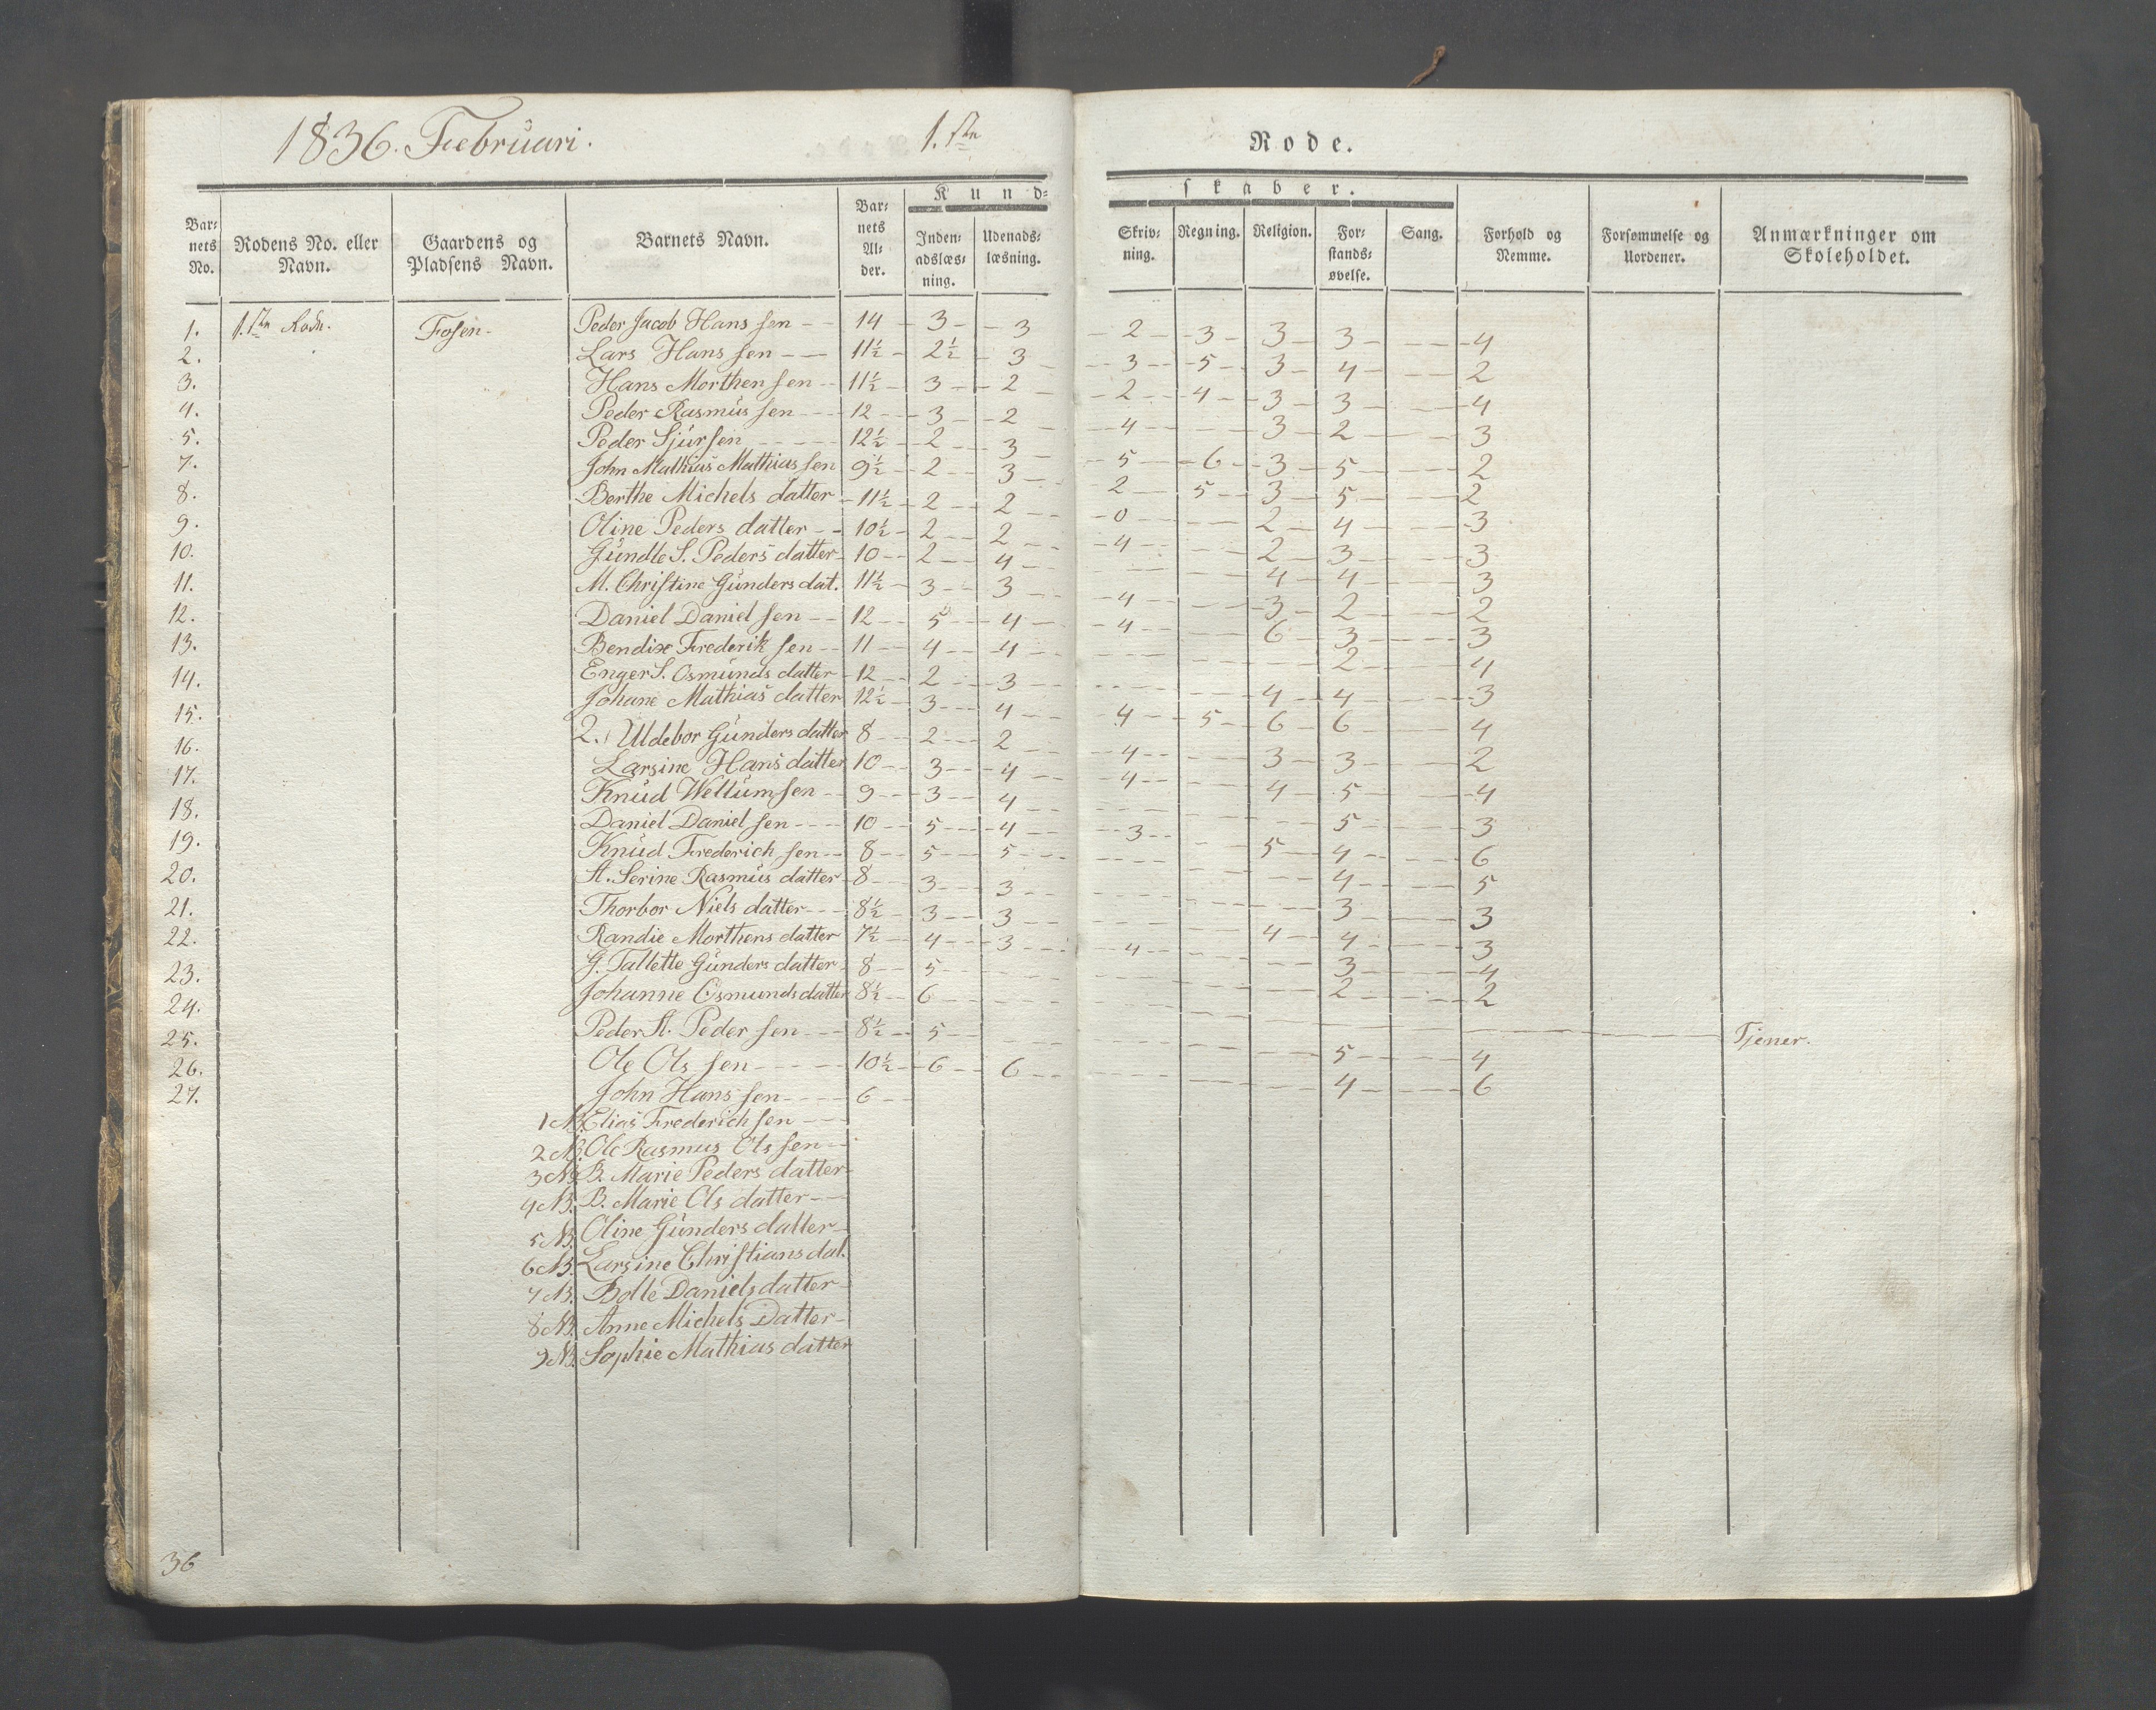 1836. Februari. 1.ste Rode.
Barnets No. | Rodens No. eller Navn. | Gaardens og Pladsens Navn. | Barnets Navn. | Barnets Alder. | Kundskaber. | Indenadslæsning. | Udenadslæsning. | Skrivning. | Regning. | Religion. | Forstandsøvelse. | Sang. | Forhold og Nemme. | Forsømmelse og Uordener. | Anmærkninger om Skoleholdet.
1. 1.ste Rode. Fosen. Peder Jacob Hanssen 14 3 3 2 3 3 3 4
2. Lars Hanssen 11½ 2½ 3 3 5 3 4 2
3. Hans Morthensen 11½ 3 2 2 4 3 3 4
4. Peder Rasmussen 12 3 2 4 3 2 3
5. Peder Sjursen 12½ 2 3 5 6 3 5 2
7. John Mathias Mathiassen 9½ 2 3 2 5 3 5 2
8. Berthe Michels datter 11½ 2 2 0 2 4 3
9. Oline Peders datter 10½ 2 2 4 2 3 3
10. Gundle S. Peders datter 10 2 4 4 4 3
11. M. Christine Gunders dat. 11½ 3 3 4 3 2 2
12. Daniel Danielsen 12 5 4 4 6 3 3
13. Bendix Frederiksen 11 4 4 2 4
14. Enger S. Osmunds datter 12 2 3 4 4 3
15. Johane Mathias datter 12½ 3 4 4 5 6 6 4
16. 2. Uldebor Gunders datter 8 2 2 4 3 3 2
17. Larsine Hans datter 10 3 4 4 4 5 4
18. Knud Wellumsen 9 3 4 5 3
19. Daniel Danielsen 10 5 4 3 5 4 6
20. Knud Frederichsen 8 5 5 4 5
21. A. Serine Rasmus datter 8 3 3 3 3
22. Thorbor Niels datter 8½ 3 3 4 4 3
23. Randie Morthens datter 7½ 4 3 4 3 4
24. G. Tallette Gunders datter 8 5 2 2
25. Johanne Osmunds datter 8½ 6 Tjener.
26. Peder A. Pedersen 8½ 5 5 4
27. Ole Olssen 10½ 6 6 4 6
John Hanssen 6
1 NB. Elias Frederichsen
2 NB. Ole Rasmus Olssen
3 NB. B. Marie Peders datter
4 NB. B. Marie Ols datter
5 NB. Oline Gunders datter
6 NB. Larsine Christians dat.
7 NB. Bolle Daniels datter
8 NB. Anne Michels Datter
9 NB. Sophie Mathias datter
36